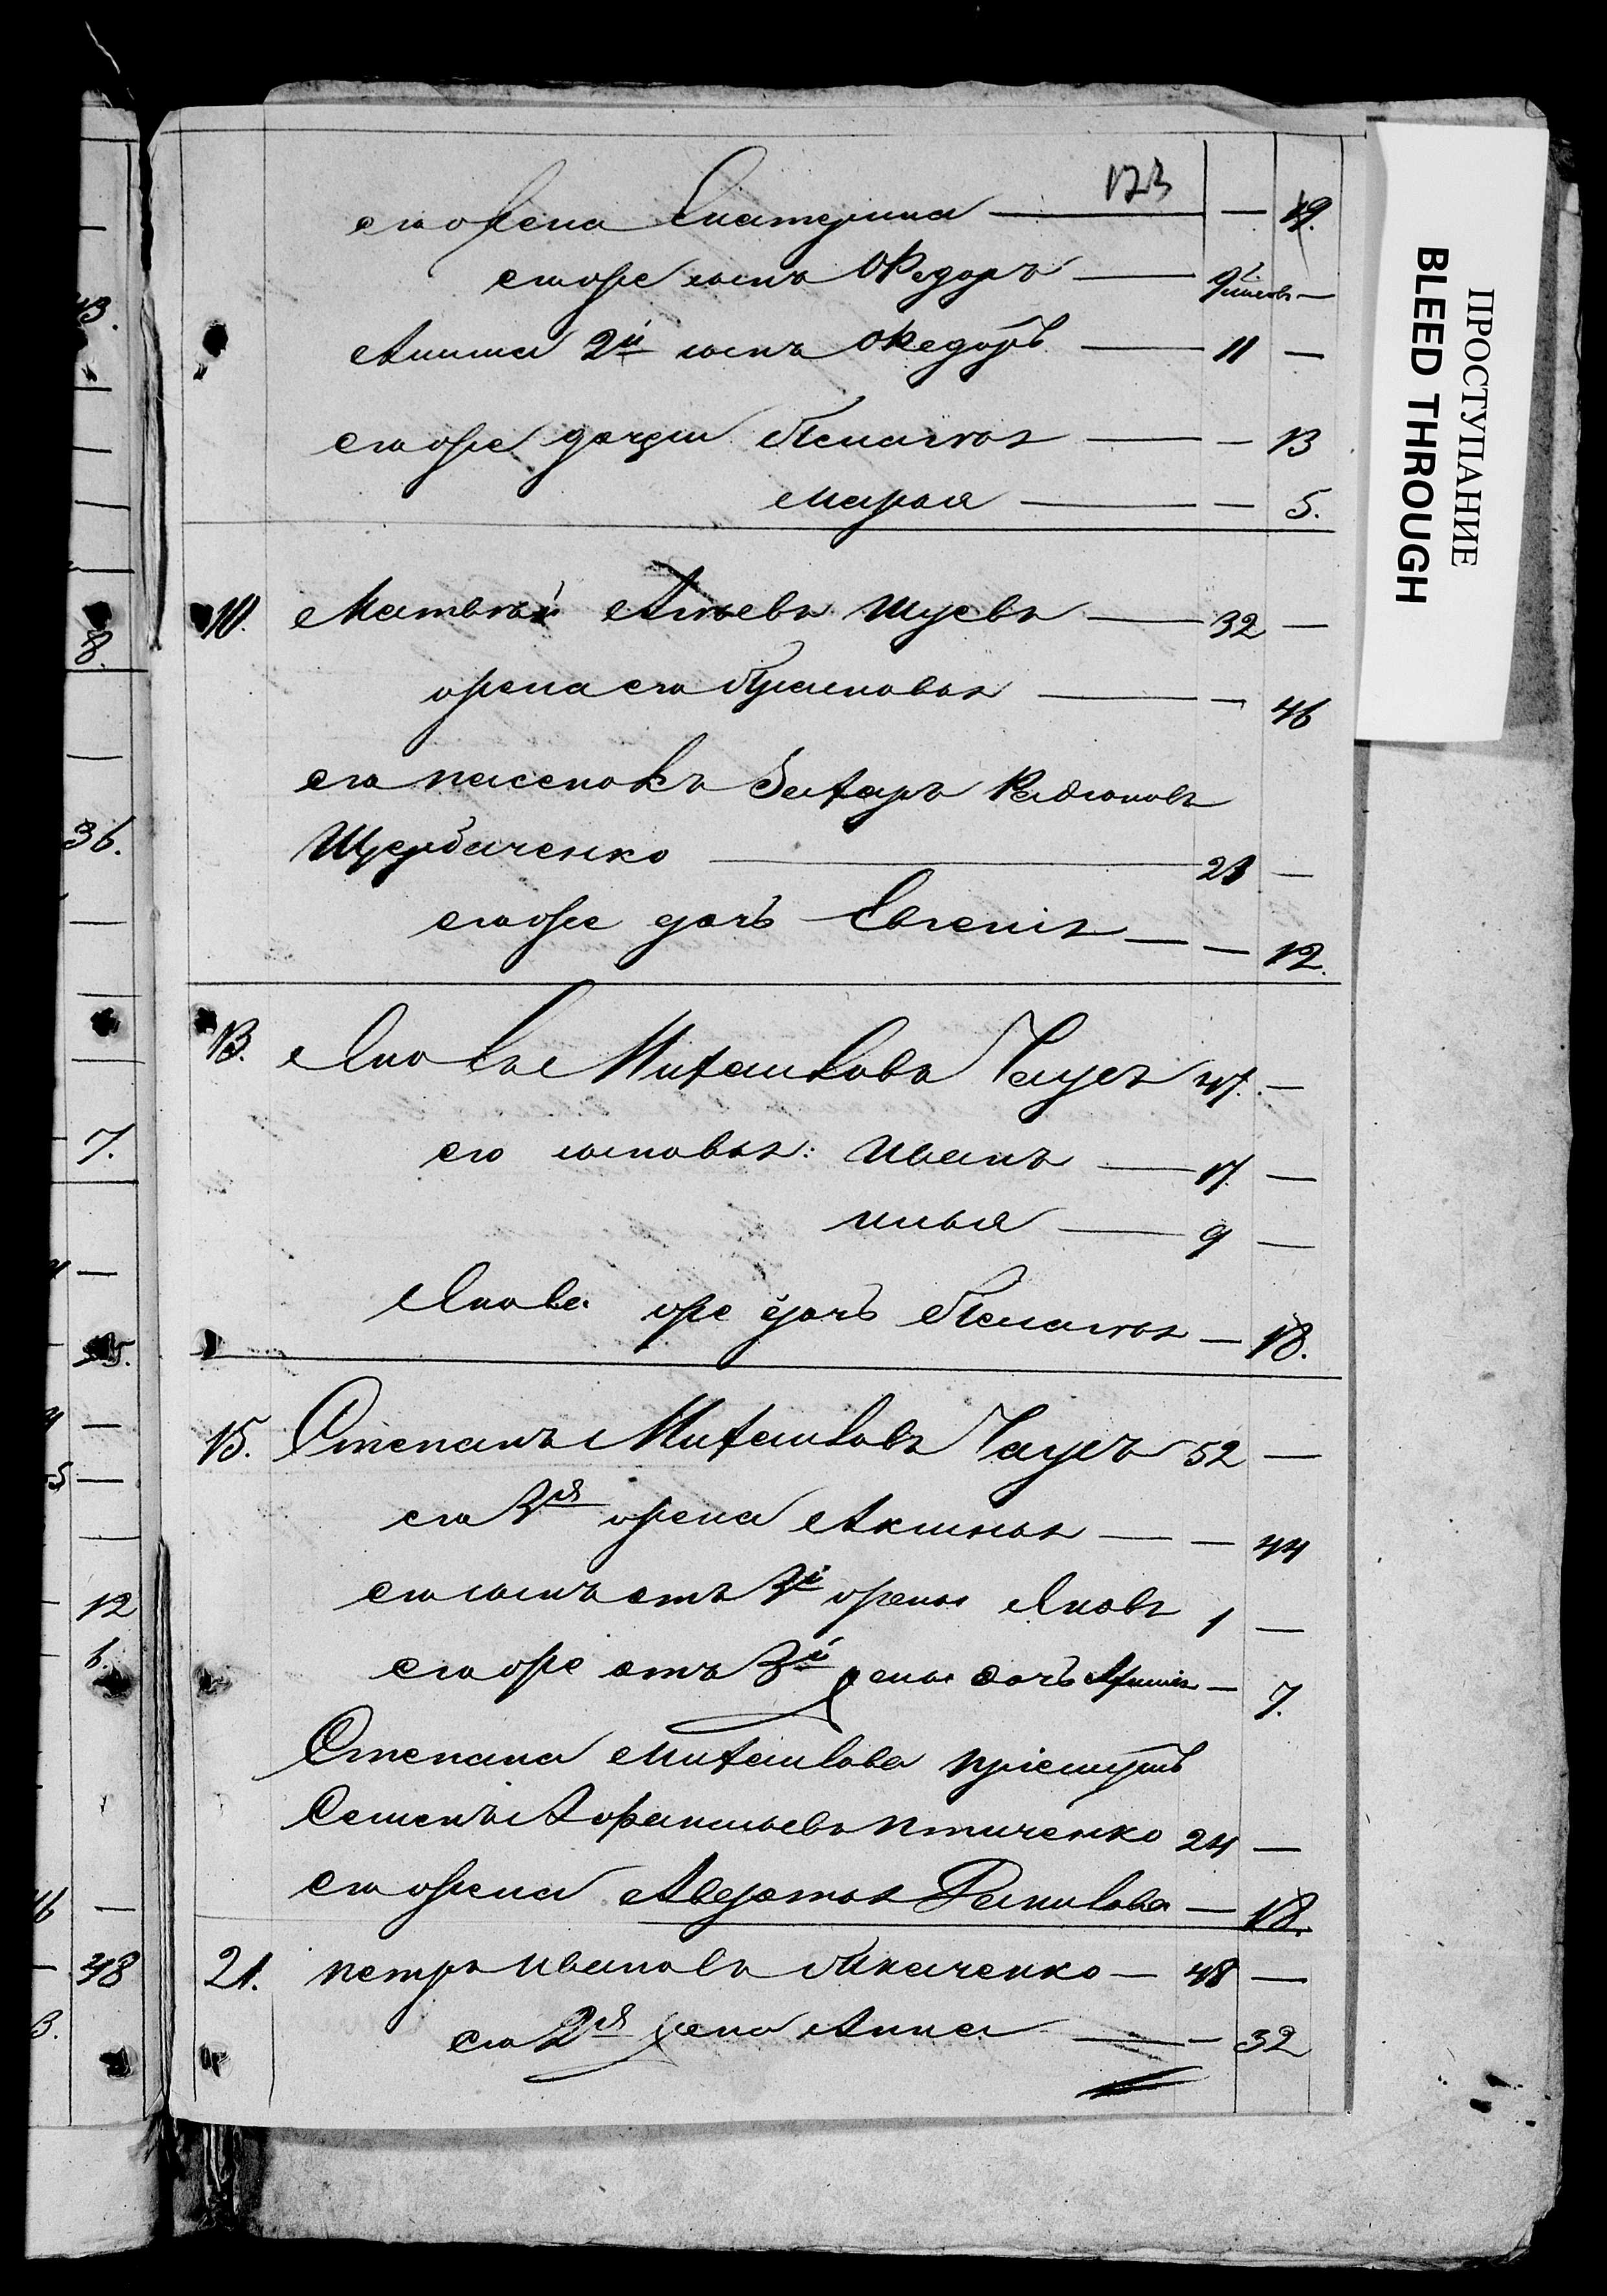 123
его жена Екатерина — — 19.
его же сынъ Федоръ — 9 мѣсяц —
Анны 2й сынъ Федоръ — 11 —
его же дочери Пелагѣя — — 13
Марья — — 5.
10. Матвѣй Шуевъ — 32 —
жена его — — 46
его пасенокъ Захаръ Радіоновъ
Щербаченко — 23 —
его же дочь Евгенія — — 12.
13. Яковъ Михайловъ Чауръ 47. —
его сыновья: Иванъ — 17 —
Илья — 9 —
Якова же дочь Пелагѣя — 18.
15. Степанъ Михайловъ Чауръ 52 —
его 3я жена Аксинья — — 44
его сынъ отъ 3й жены Яковъ 1 —
его же отъ 3й жены дочь — 7.
Степана Михайлова пріемышъ
Семенъ Афанасьевъ Птиченко 24 —
его жена Авдотья Данилова — 18.
21. Петръ Ивановъ Ткаченко — 48 —
его 2я жена Анна — — 32
ПРОСТУПАНИЕ
BLEED THROUGH
13.
8.
36.
7.
12
6.
48